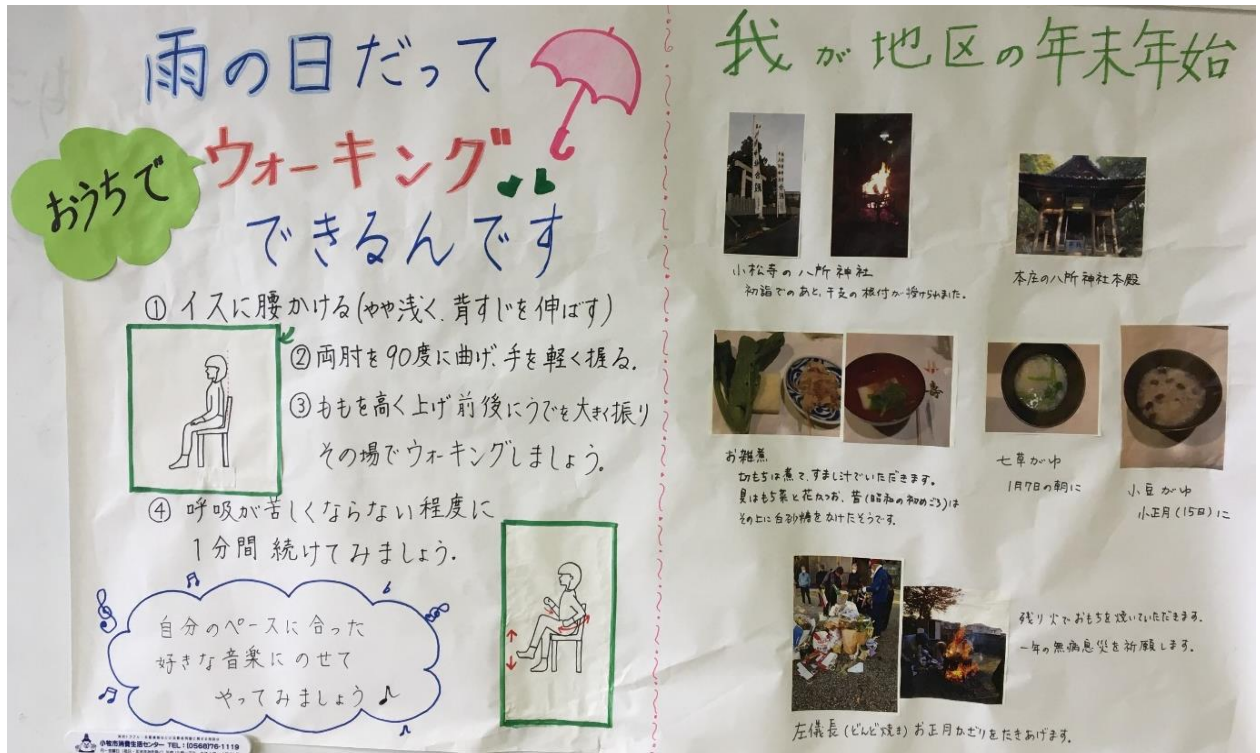 雨の日だって
おうちで
ウォーキング
できるんです
① イスに腰かける(やや浅く、背すじを伸ばす)
② 両肘を90度に曲げ、手を軽く握る.
③ ももを高く上げ前後にうでを大きく振り
その場でウォーキングしましょう。
④ 呼吸が苦しくならない程度に
1分間 続けてみましょう.
自分のペースに合った
好きな音楽にのせて
やってみましょう♪
小牧市消費生活センター TEL:(0568)76-1119
我が地区の年末年始
小松寺の八所神社
初詣でのあと、干支の根付が授けられました。
本庄の八所神社本殿
お雑煮
切もちは煮て、すまし汁でいただきます。
具はもち菜と花かつお、昔(昭和の初めごろ)は
その上に白砂糖をかけたそうです。
七草がゆ
1月7日の朝に
小豆がゆ
小正月(15日)に
残り火でおもちを焼いていただきます。
一年の無病息災を祈願します。
左儀長(どんど焼き)お正月かざりをたきあげます。